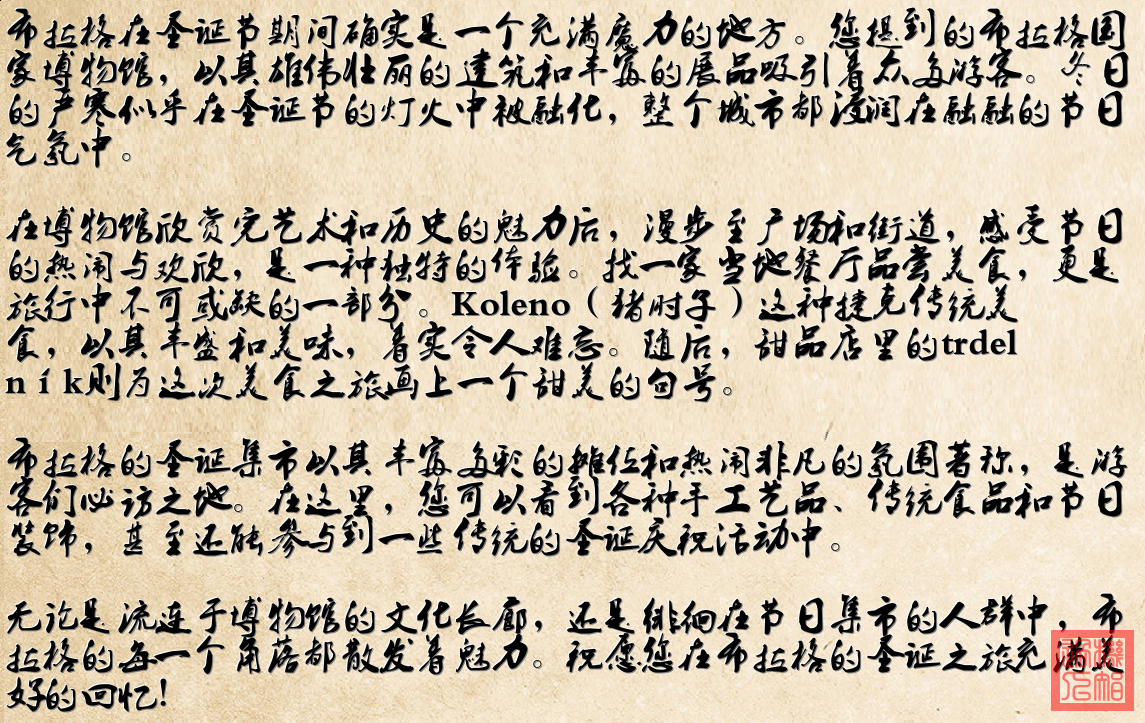 布拉格在圣诞节期间确实是一个充满魔力的地方。您提到的布拉格国
家博物馆，以其雄伟壮丽的建筑和丰富的展品吸引着众多游客。冬日
的严寒似乎在圣诞节的灯火中被融化，整个城市都浸润在融融的节日
气氛中。
在博物馆欣赏完艺术和历史的魅力后，漫步至广场和街道，感受节日
的热闹与欢欣，是一种独特的体验。找一家当地餐厅品尝美食，更是
旅行中不可或缺的一部分。Koleno（猪肘子）这种捷克传统美
食，以其丰盛和美味，着实令人难忘。随后，甜品店里的trdel
ník则为这次美食之旅画上一个甜美的句号。
布拉格的圣诞集市以其丰富多彩的摊位和热闹非凡的氛围著称，是游
客们必访之地。在这里，您可以看到各种手工艺品、传统食品和节日
装饰，甚至还能参与到一些传统的圣诞庆祝活动中。
无论是流连于博物馆的文化长廊，还是徘徊在节日集市的人群中，布
拉格的每一个角落都散发着魅力。祝愿您在布拉格的圣诞之旅充满美
好的回忆!